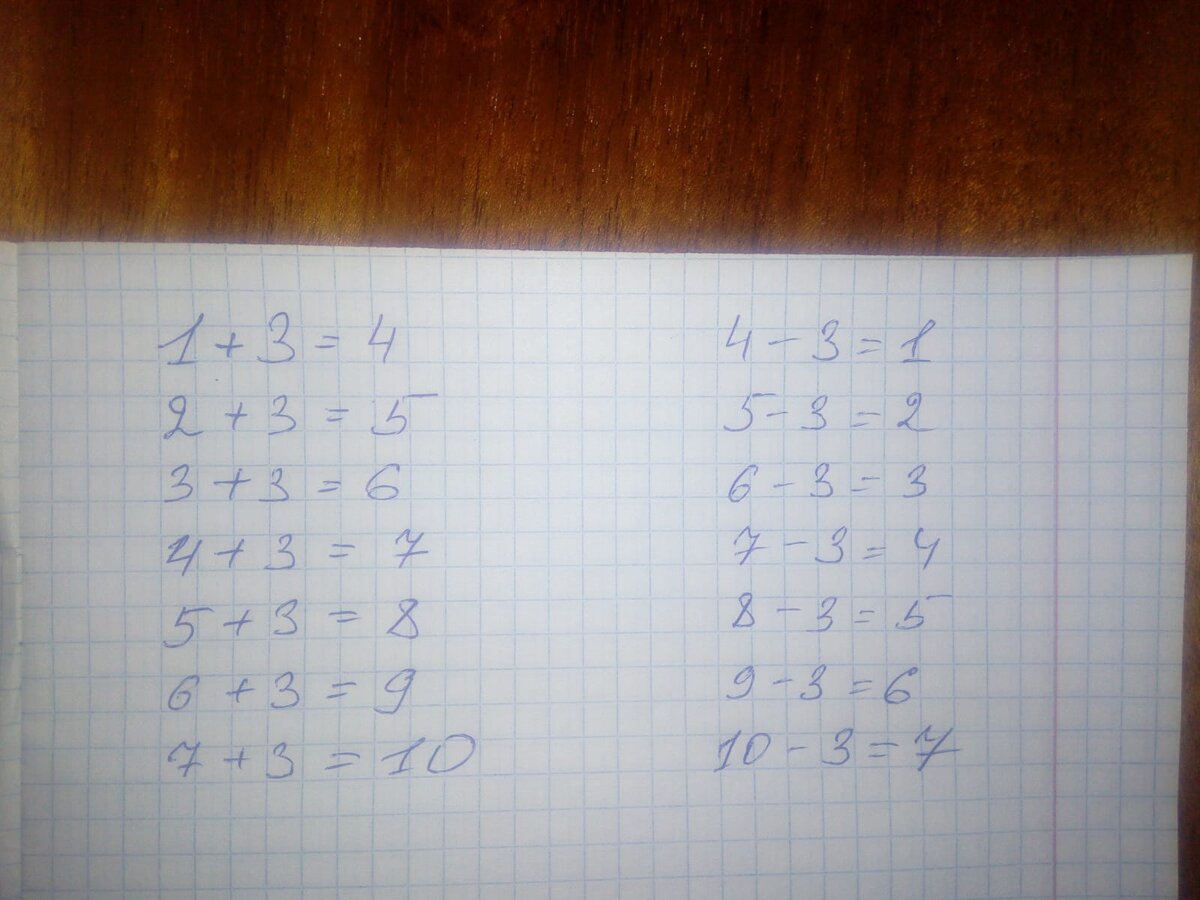 1 + 3 = 4 4 - 3 = 1
2 + 3 = 5 5 - 3 = 2
3 + 3 = 6 6 - 3 = 3
4 + 3 = 7 7 - 3 = 4
5 + 3 = 8 8 - 3 = 5
6 + 3 = 9 9 - 3 = 6
7 + 3 = 10 10 - 3 = 7